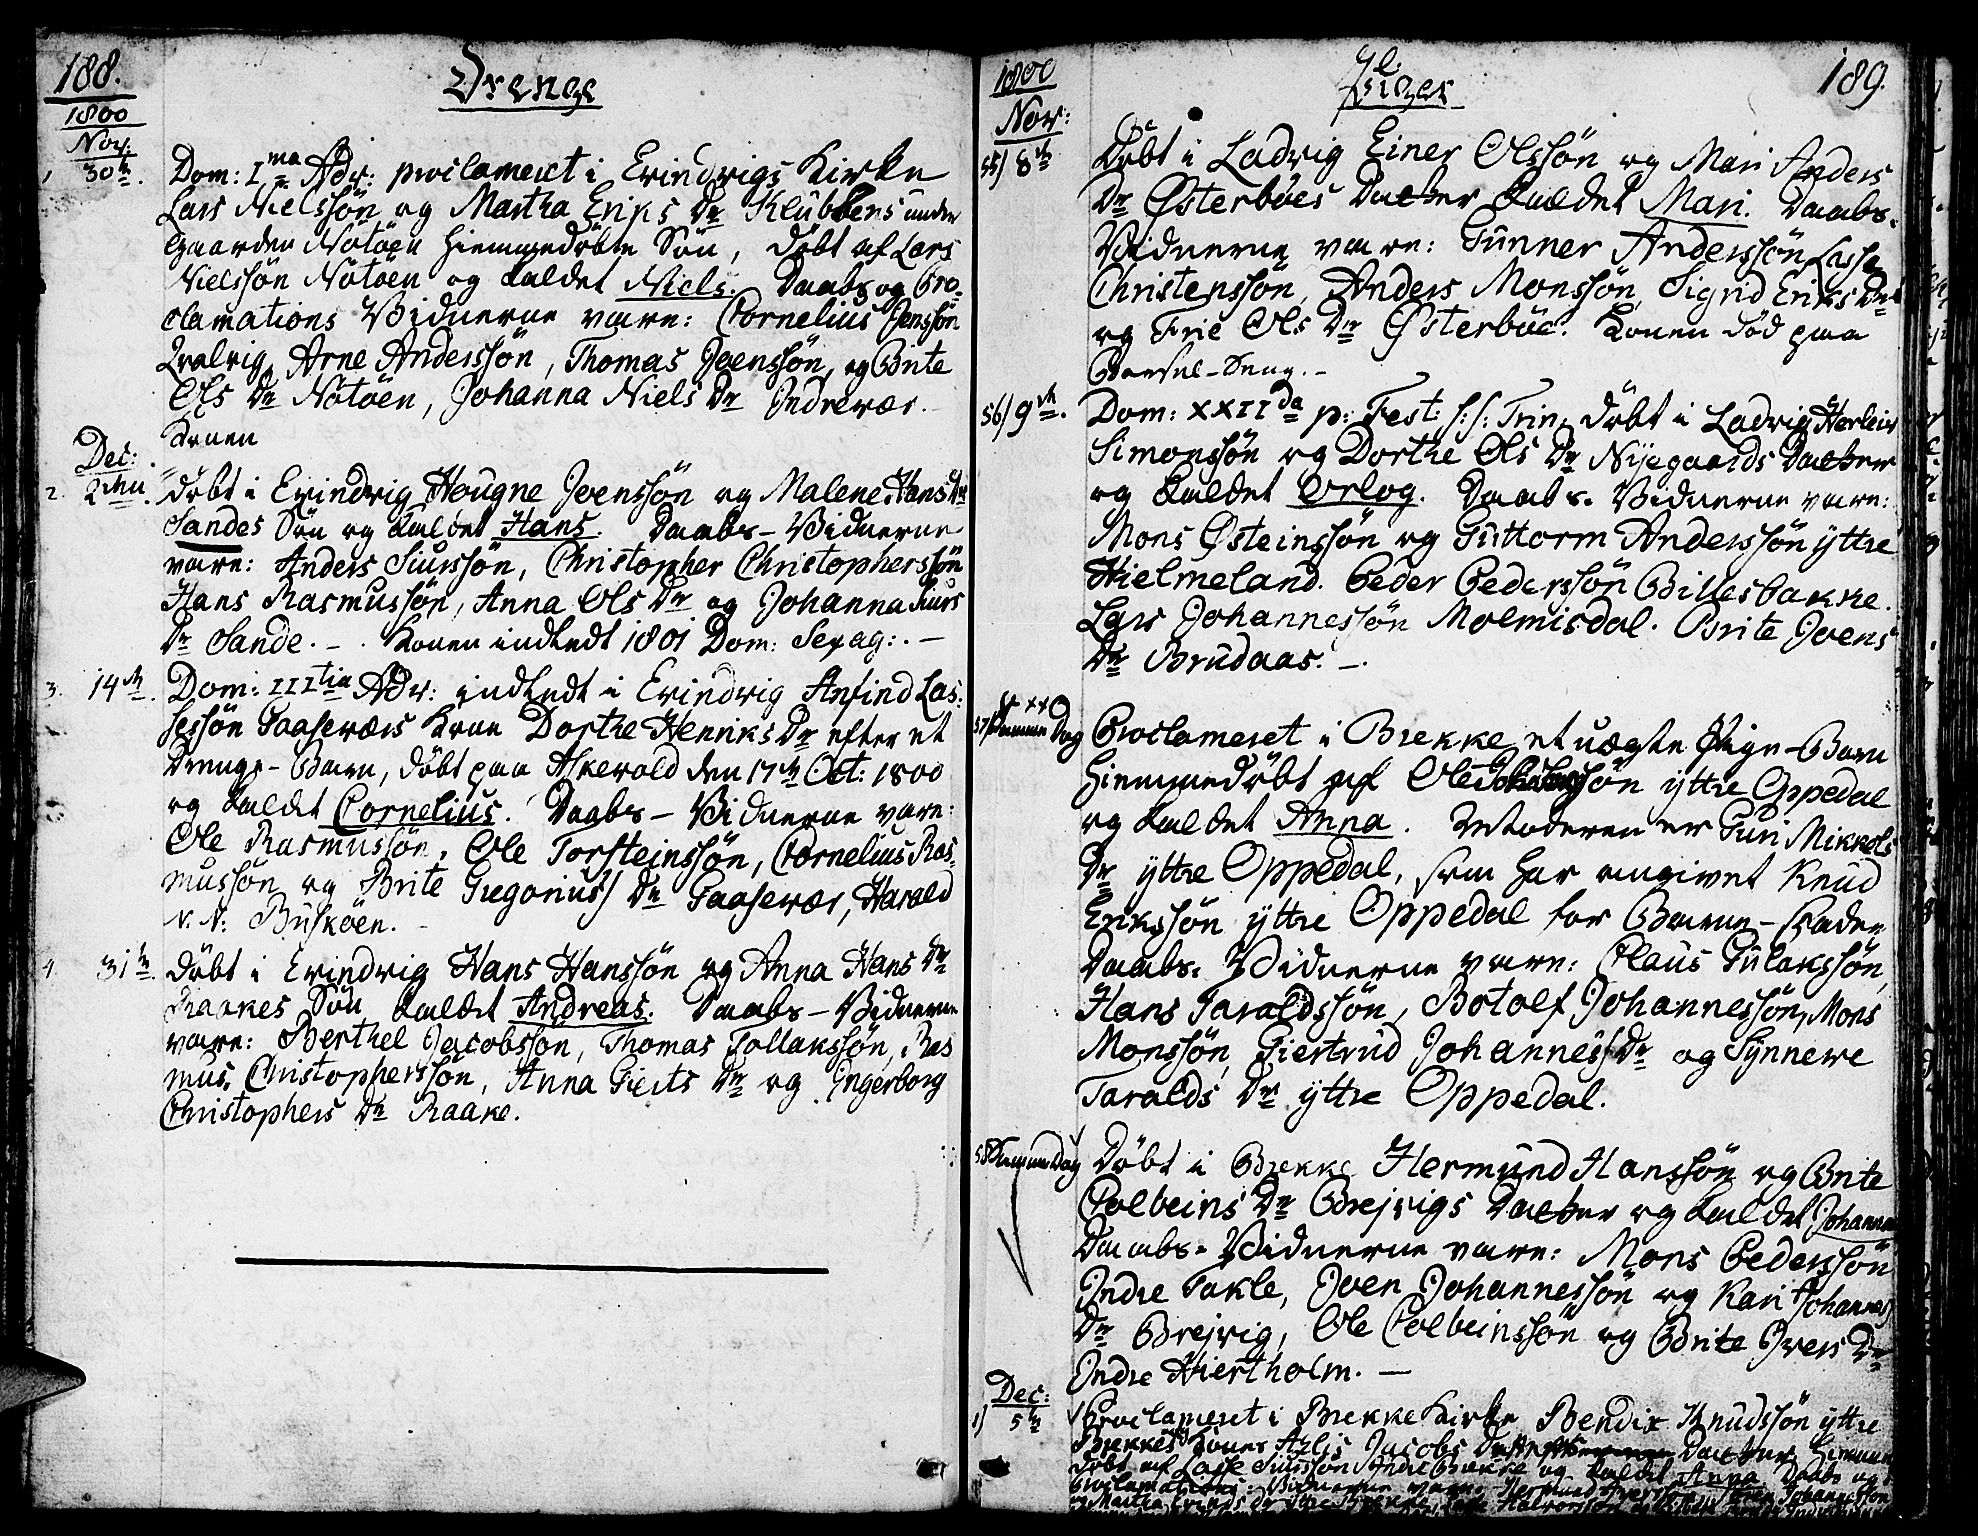 188.
1800
Nov:
Drenge
1. 30te. Dom: Ima Adv: proclameret i Evindvigs Kirke
Lars Nielssön og Martha Eriks Dr Klubbens under
Gaarden Nötöen hiemmedöbte Sön, döbt af Lars
Nielssön Nötöen og kaldet Niels. Daabs og Pro-
clamations Vidnerne vare: Cornelius Jenssön
Qvalvig, Arne Anderssön, Thomas Joenssön, og Brite
Ols Dr Nötöen, Johanna Niels Dr Indrevær.
Konen
Dec:
2. 2den. döbt i Evindvig Hougne Joenssön og Malene Hans Dr
Sandes Sön og kaldet Hans. Daabs-Vidnerne
vare: Anders Siurssön, Christopher Christopherssön
Hans Rasmussön, Anna Ols Dr og Johanna Siurs
Dr Sande. - . Konen indledt 1801 Dom: Sexag: . -
3. 14de. Dom: IIItia Adv: indledt i Evindvig Anfind Las-
sessön Gaaseværs Kone Dorthe Henriks Dr efter et
Drenge-Barn, döbt paa Askevold den 17de Oct: 1800
og kaldet Cornelius. Daabs-Vidnerne vare:
Ole Rasmussön, Ole Torsteinssön, Cornelius Ras-
mussön og Brite Gregorius Dr Gaasevær, Harald
N. N: Busköen. -
4. 31te döbt i Evindvig Hans Hanssön og Anna Hans Dr
Raakes Sön kaldet Andreas. Daabs-Vidnerne
vare: Berthel Jacobssön, Thomas Tollakssön, Ras
mus Christopherssön, Anna Gierts Dr og Ingerborg
Christophers Dr Raake.
1800
Nov:
Piger
189.
55) 8de Döbt i Ladvig Einer Olssön og Mari Anders
Dr Österböes Datter kaldet Mari. Daabs-
Vidnerne vare: Gunner Anderssön, Lasse
Christenssön, Anders Monssön, Sigrid Eriks Dr
og Frie Ols Dr Österböe. Konen död paa
Barsel-Seng. -
56) 9de. Dom: XXIIda p: Fest: s: s: Trin, döbt i Ladvig Herleiv
Simonssön og Dorthe Ols Dr Nyegaards Datter
og kaldet Orlog. Daabs-Vidnerne vare:
Mons Östeinssön og Guttorm Anderssön yttre
Hielmeland. Peder Pederssön Billesbakke.
Lars Johannessön Molmisdal. Brite Joens
Dr Brudaas. -.
57) Samme Dag Proclameret i Brekke et uægte Pige-Barn
hiemmedöbt af Ole yttre Oppedal
og kaldet Anna. Moderen er Guri Mikkels
Dr yttre Oppedal, som har angivet Knud
Erikssön yttre Oppedal for Barne-Fader
Daabs-Vidnerne vare: Claus Gulakssön,
Hans Taraldssön, Botolf Johannessön, Mons
Monssön, Giertrud Johannes Dr og Synneve
Taralds Dr yttre Oppedal.
58 Samme Dag Döbt i Brekke Hermund Hanssön og Brite
Colbeins Dr Brejvigs Datter og kaldet Johanna
Daabs-Vidnerne vare: Mons Pederssön
Indre Takle, Joen Johannessön og Kari Johannes
Dr Brejvig, Ole Colbeinssön og Brite Ivers Dr
Indre Hiertholm. -
Dec:
1) 5te Proclameret i Brekke Kirke Bendix Knudssön yttre
Brekkes Kones Azlis Jacobs Datter hiemme
döbt af Lasse Siurssön Indre Brekke og kaldet Anna. Daabs og
Proclamations: Vidnerne vare: Hermund Iverssön, Joen Johannessön